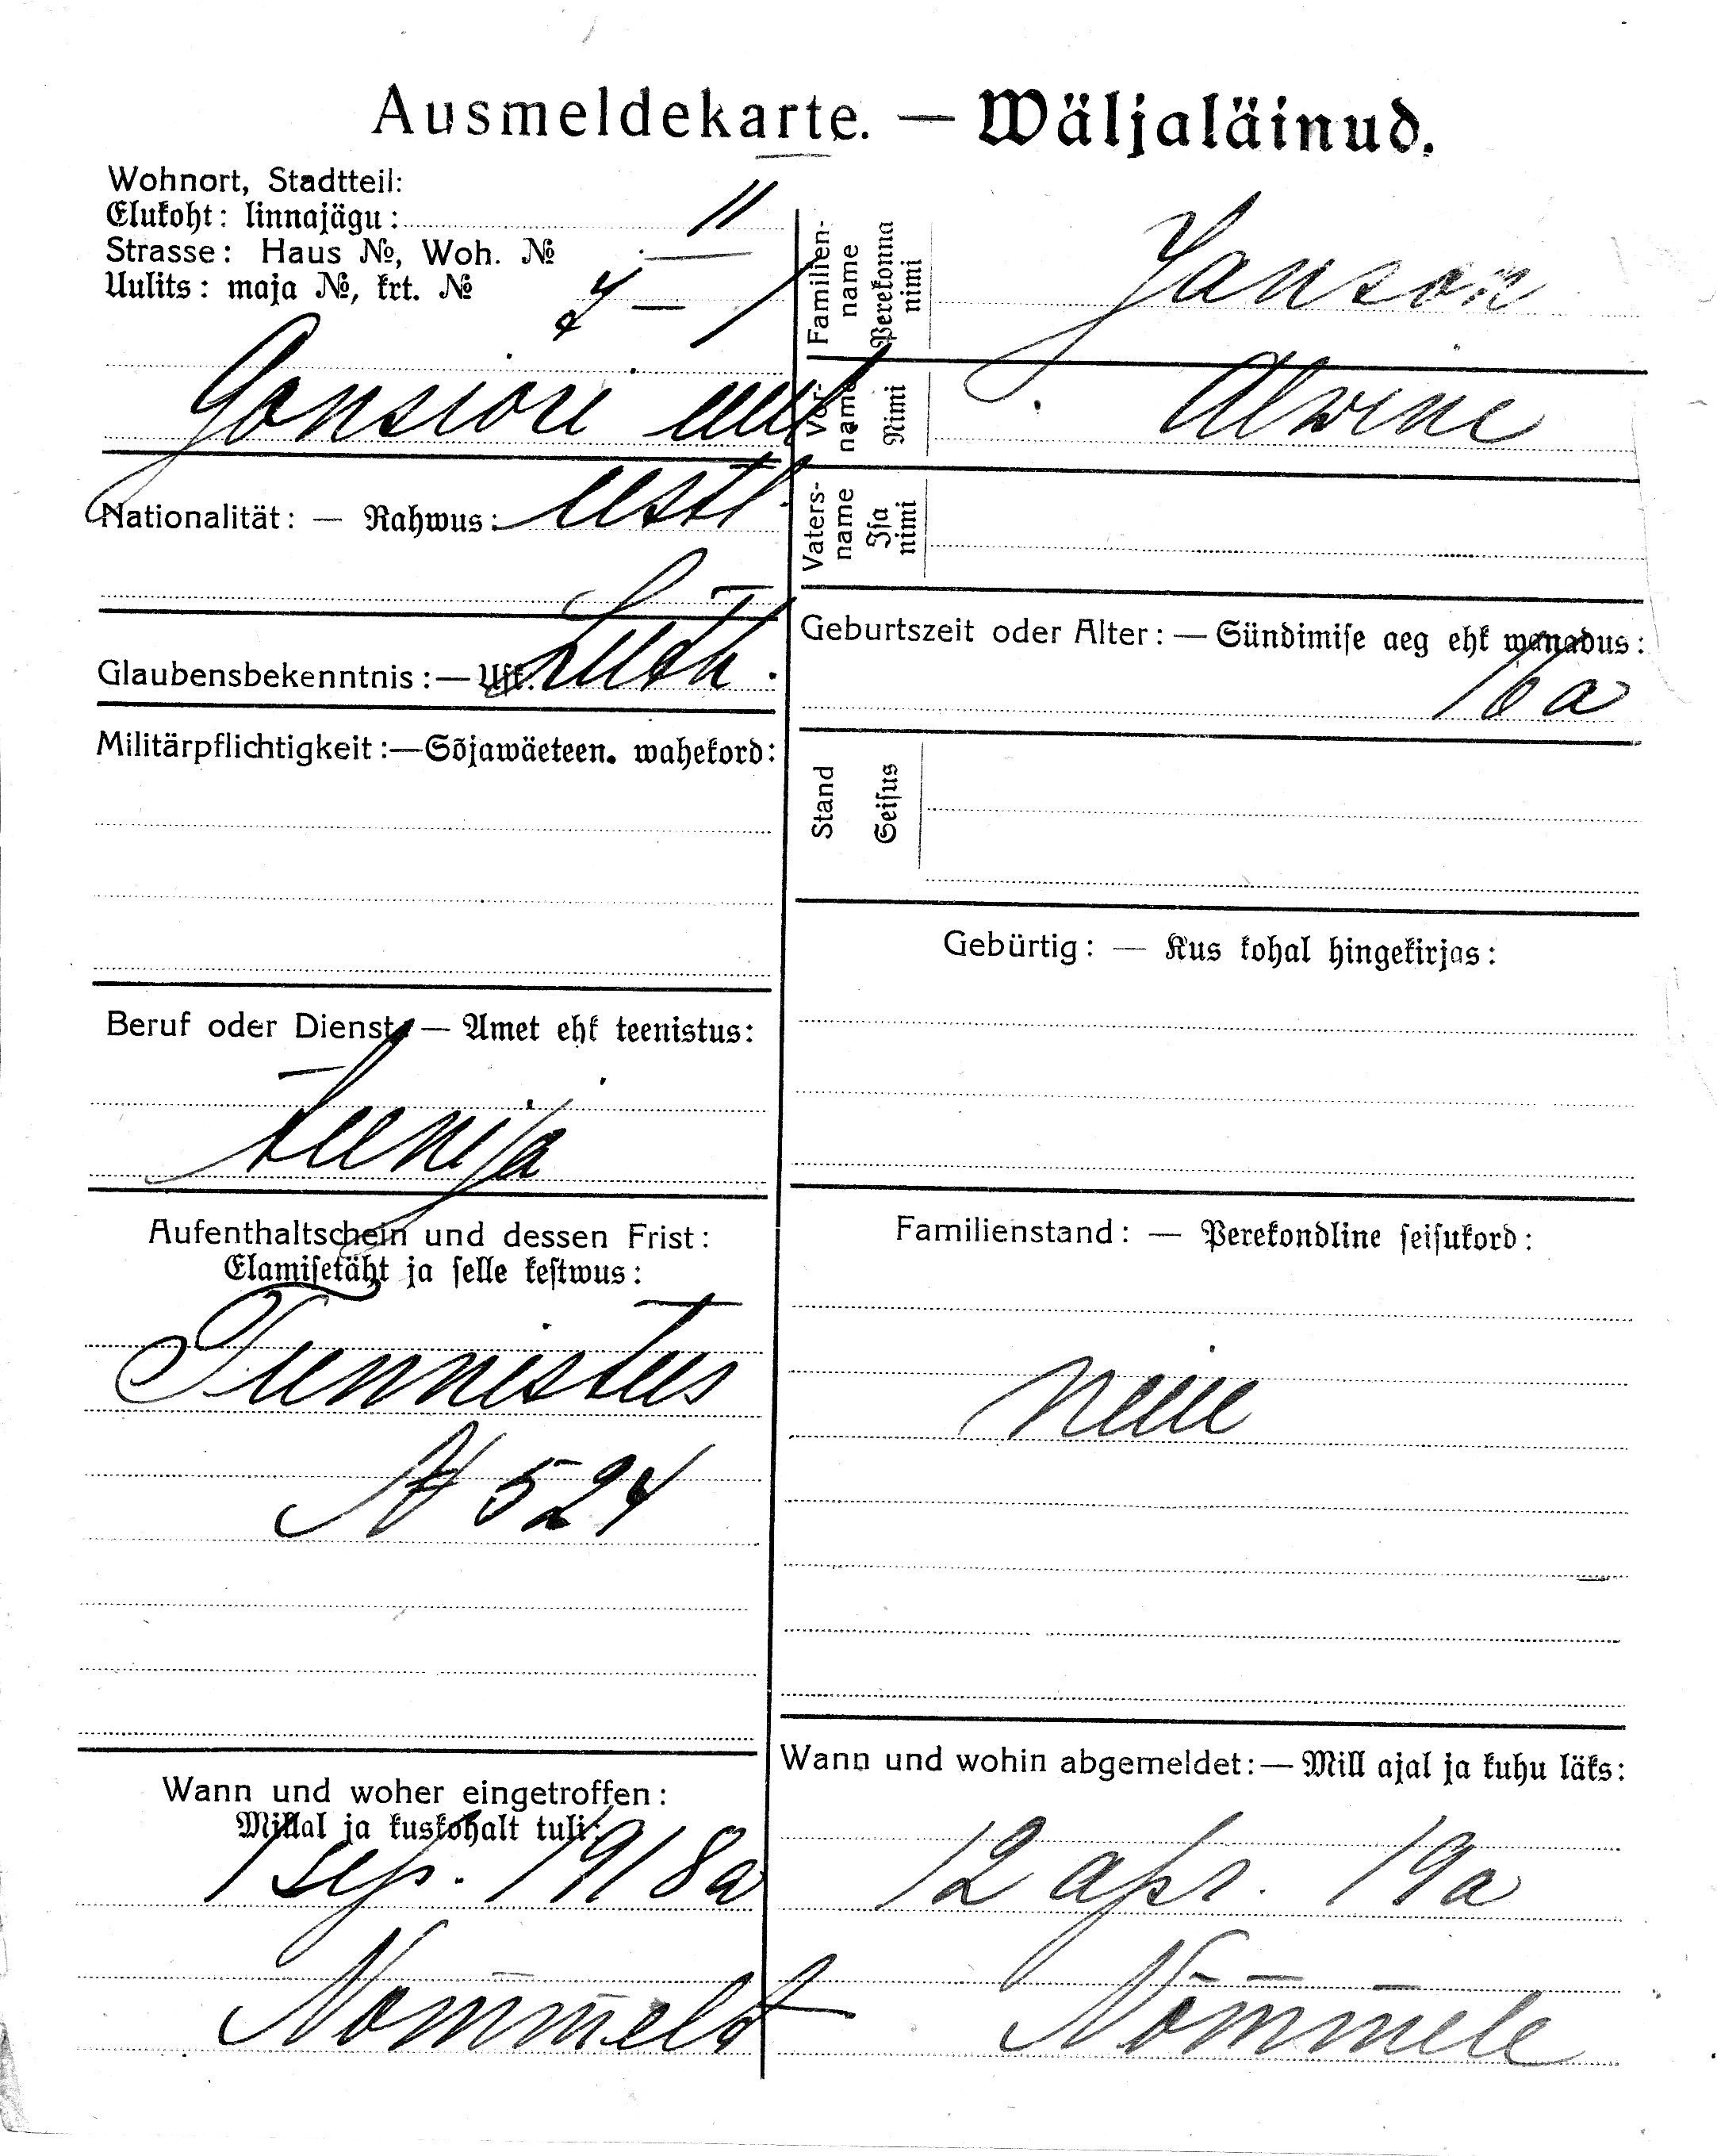 Ausmeldekarte. — Wäljaläinud.
Wohnort, Stadtteil:
Elukoht: linnajägu: II
Strasse: Haus №, Woh. №
Uulits: maja №, krt. № 7 — 1
Gonsiori uul
Nationalität: — Rahwus: eestl.
Glaubensbekenntnis: — Usk: Luth.
Militärpflichtigkeit: — Sõjawäeteen. wahekord:
Beruf oder Dienst: — Amet ehk teenistus:
teenija
Aufenthaltschein und dessen Frist:
Elamisetäht ja selle kestwus:
Tunnistus
№ 524
Wann und woher eingetroffen:
Millal ja kuskohalt tuli:
1 sep. 1918 a
Nõmmelt
Familien-
name
Perekonna
nimi
Janson
Vor-
name
Nimi
Alwine
Vaters-
name
Isa
nimi
Geburtszeit oder Alter: — Sündimise aeg ehk wanadus:
16 a
Stand
Seisus
Gebürtig: — Kus kohal hingekirjas:
Familienstand: — Perekondline seisukord:
neiu
Wann und wohin abgemeldet: — Mill ajal ja kuhu läks:
12 apr. 19 a
Nõmmele